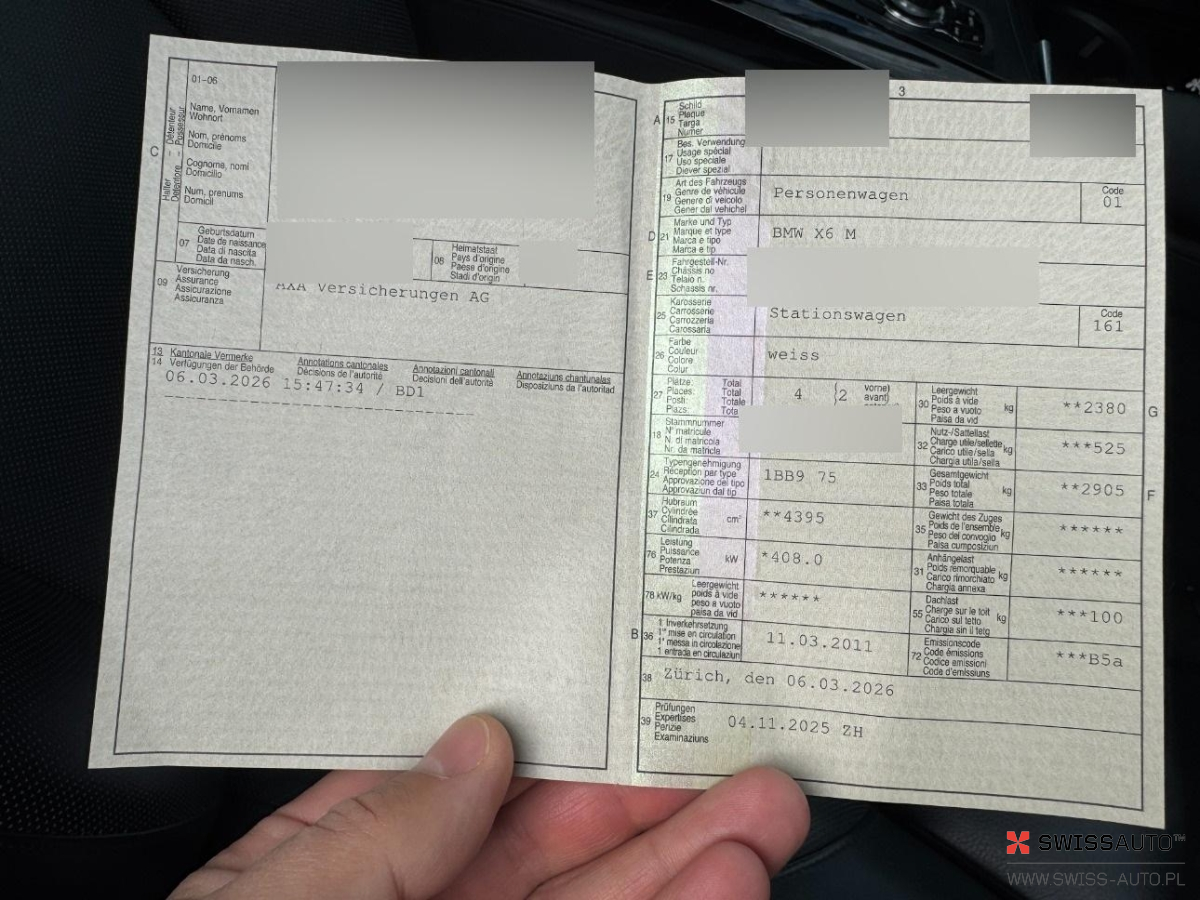 01-06
Name, Vornamen
Wohnort
Nom, prénoms
Domicile
Cognome, nomi
Domicilio
Num, prenums
Domicil
C
Halter – Détenteur
Detentore – Possessur
07
Geburtsdatum
Date de naissance
Data di nascita
Data da nasch.
08
Heimatstaat
Pays d'origine
Paese d'origine
Stadi d'origin
09
Versicherung
Assurance
Assicurazione
Assicuranza
AXA Versicherungen AG
13 Kantonale Vermerke Annotations cantonales Annotazioni cantonali Annotaziuns chantunalas
14 Verfügungen der Behörde Décisions de l'autorité Decisioni dell'autorità Disposiziuns da l'autoritad
06.03.2026 15:47:34 / BD1
3
A 15
Schild
Plaque
Targa
Numer
17
Bes. Verwendung
Usage spécial
Uso speciale
Diever spezial
19
Art des Fahrzeugs
Genre de véhicule
Genere di veicolo
Gener dal vehichel
Personenwagen
Code
01
D 21
Marke und Typ
Marque et type
Marca e tipo
Marca e tip
BMW X6 M
E 23
Fahrgestell-Nr.
Châssis no
Telaio n.
Schassis nr.
25
Karosserie
Carrosserie
Carrozzeria
Carossaria
Stationswagen
Code
161
26
Farbe
Couleur
Colore
Colur
weiss
27
Plätze: Total
Places: Total
Posti: Totale
Plazs: Tota
4 {2 vorne)
avant)
18
Stammnummer
N° matricule
N. di matricola
Nr. da matricla
24
Typengenehmigung
Réception par type
Approvazione del tipo
Approvaziun dal tip
1BB9 75
37
Hubraum
Cylindrée
Cilindrata
Cilindrada
cm³
**4395
76
Leistung
Puissance
Potenza
Prestaziun
kW
*408.0
78 kW/kg
Leergewicht
poids à vide
peso a vuoto
paisa da vid
******
B 36
1. Inverkehrsetzung
1re mise en circulation
1a messa in circolazione
1 entrada en circulaziun
11.03.2011
30
Leergewicht
Poids à vide
Peso a vuoto
Paisa da vid
kg
**2380
G
32
Nutz-/Sattellast
Charge utile/sellette
Carico utile/sella
Chargia utila/sella
kg
***525
33
Gesamtgewicht
Poids total
Peso totale
Paisa totala
kg
**2905
F
35
Gewicht des Zuges
Poids de l'ensemble
Peso del convoglio
Paisa cumposiziun
kg
******
31
Anhängelast
Poids remorquable
Carico rimorchiato
Chargia annexa
kg
******
55
Dachlast
Charge sur le toit
Carico sul tetto
Chargia sin il tetg
kg
***100
72
Emissionscode
Code émissions
Codice emissioni
Code d'emissiuns
***B5a
38
Zürich, den 06.03.2026
39
Prüfungen
Expertises
Perizie
Examinaziuns
04.11.2025 ZH
SWISSAUTO™
WWW.SWISS-AUTO.PL